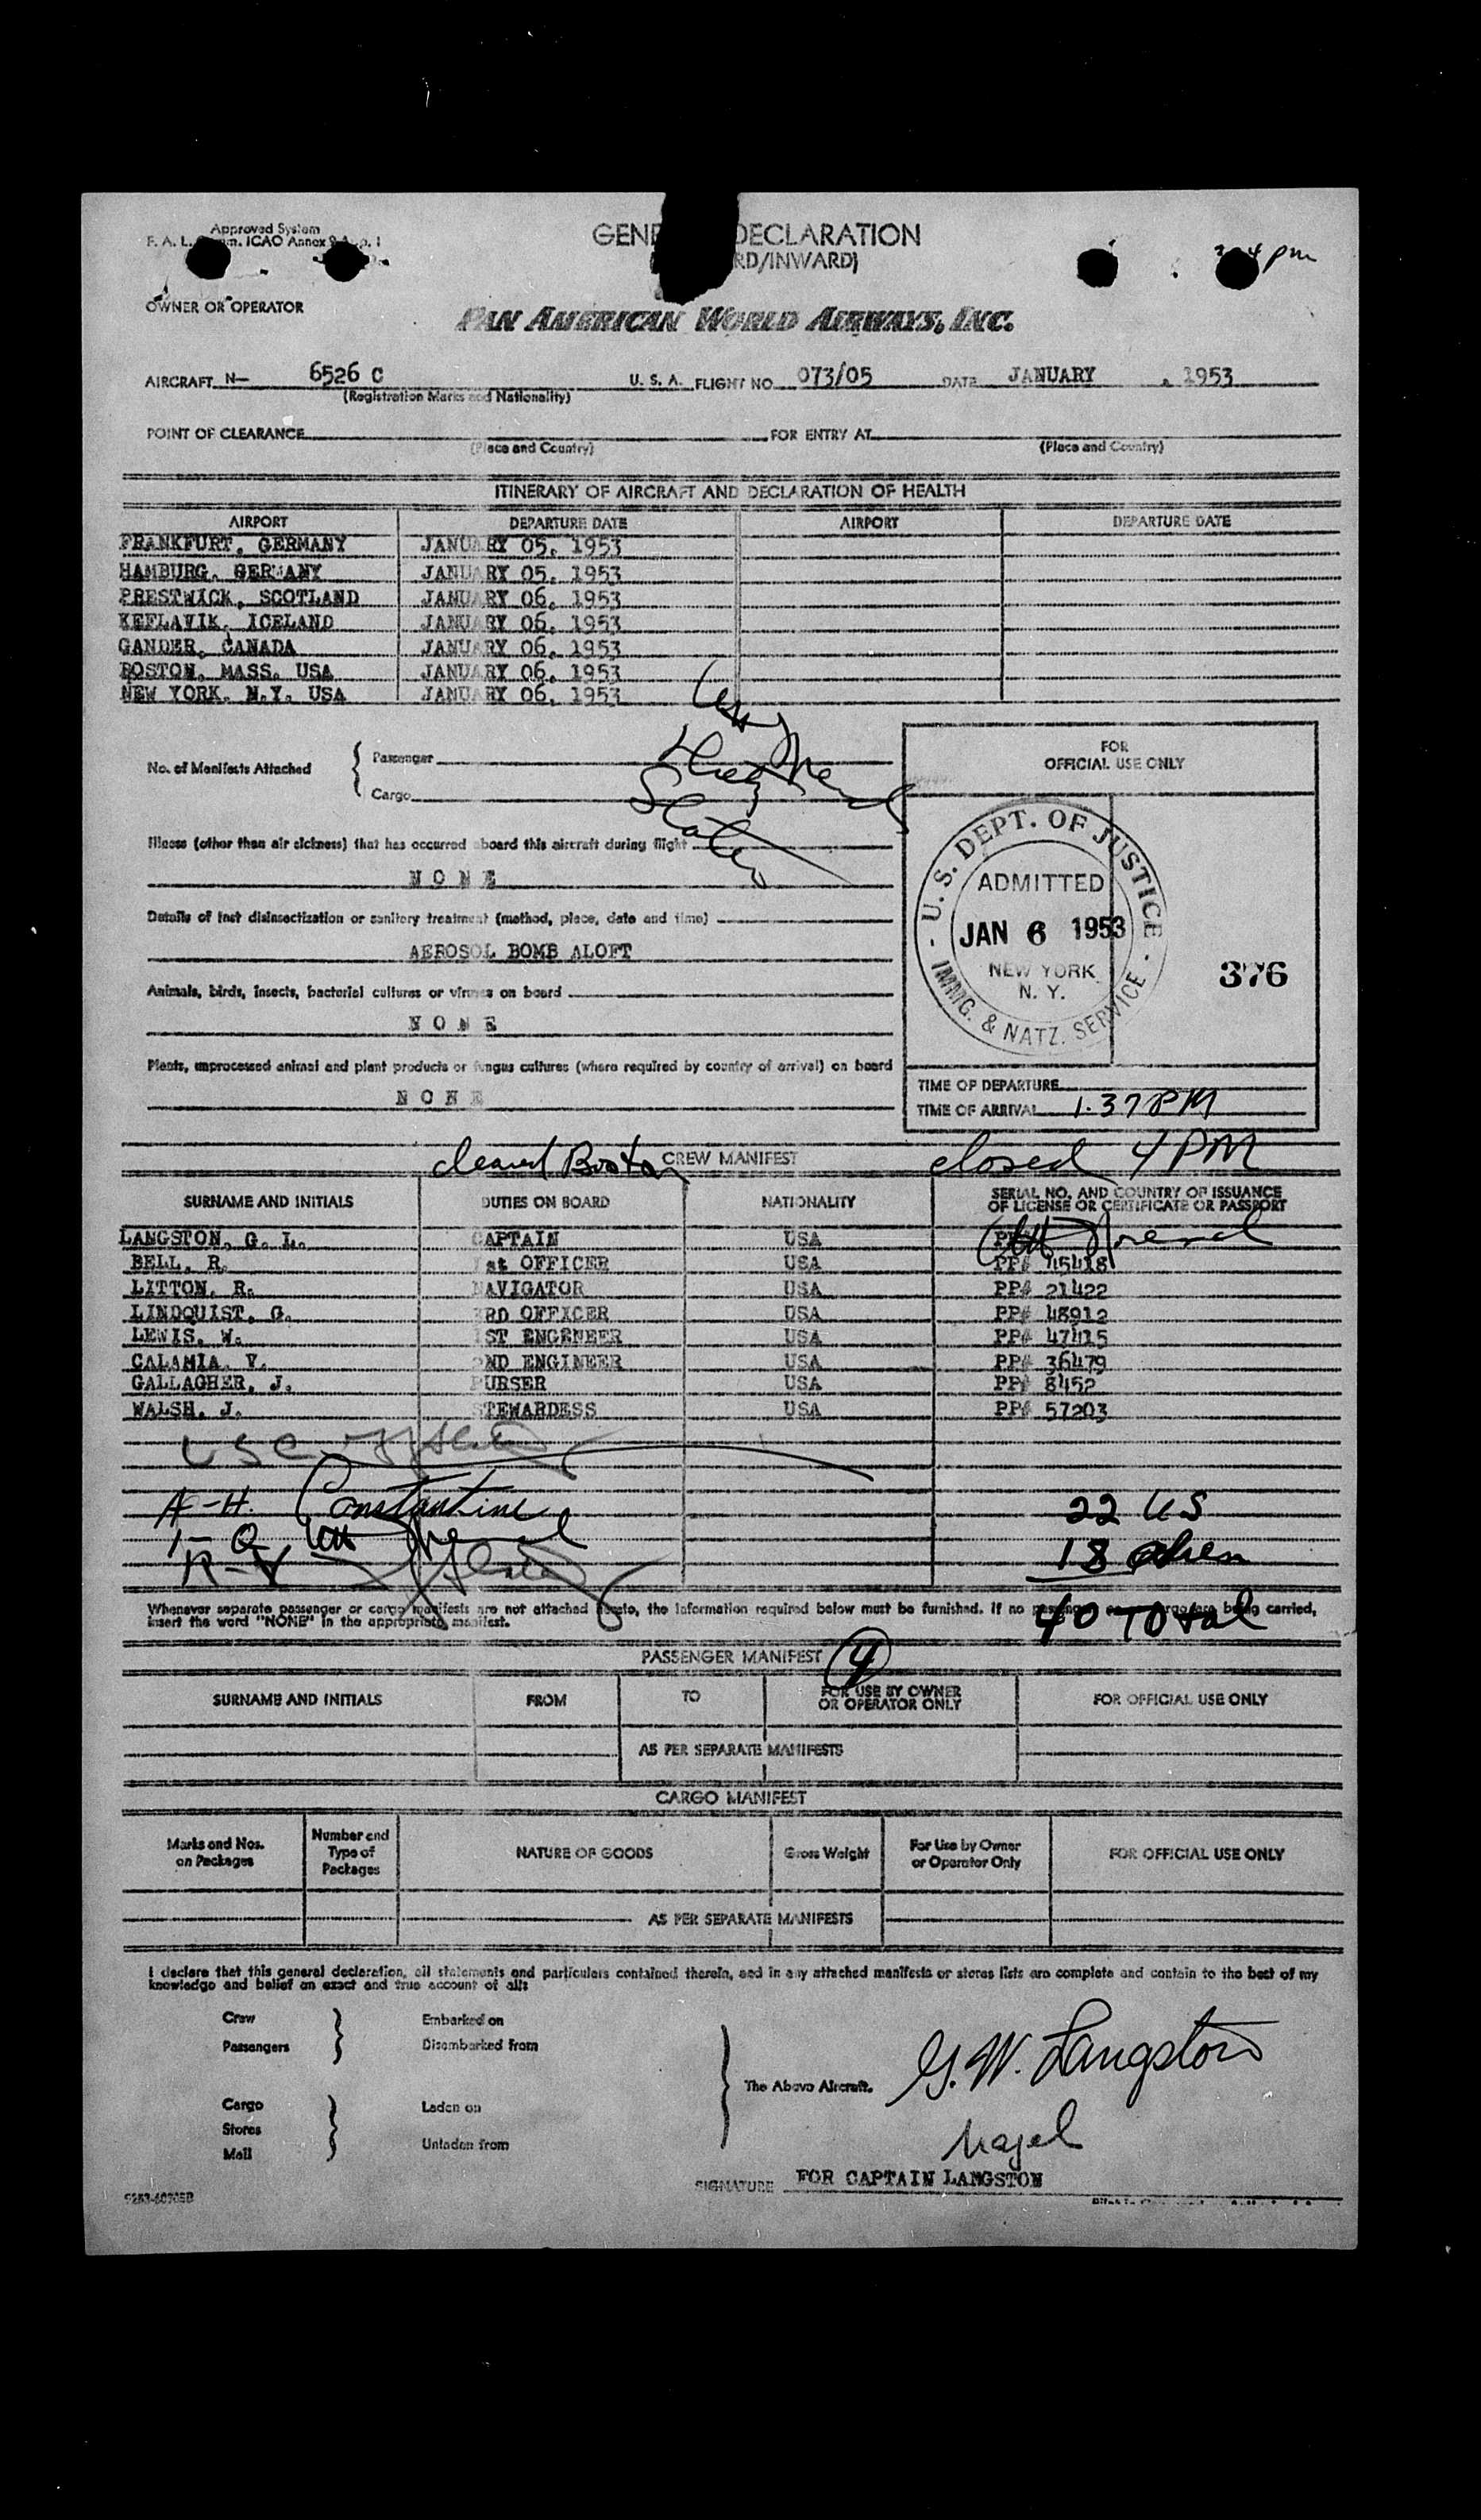 Approved System
F. A. L. ICAO Annex 9
GENE DECLARATION
RD/INWARD)
4 pm
OWNER OR OPERATOR
PAN AMERICAN WORLD AIRWAYS, INC.
AIRCRAFT N— 6526 C U. S. A. FLIGHT NO. 073/05 DATE JANUARY , 1953
(Registration Marks and Nationality)
POINT OF CLEARANCE FOR ENTRY AT
(Place and Country) (Place and Country)
ITINERARY OF AIRCRAFT AND DECLARATION OF HEALTH
AIRPORT DEPARTURE DATE AIRPORT DEPARTURE DATE
FRANKFURT, GERMANY JANUARY 05, 1953
HAMBURG, GERMANY JANUARY 05, 1953
PRESTWICK, SCOTLAND JANUARY 06, 1953
KEFLAVIK, ICELAND JANUARY 06, 1953
GANDER, CANADA JANUARY 06, 1953
BOSTON, MASS. USA JANUARY 06, 1953
NEW YORK, N.Y. USA JANUARY 06, 1953
No. of Manifests Attached { Passenger
Cargo
FOR
OFFICIAL USE ONLY
Illness (other than air sickness) that has occurred aboard this aircraft during flight
N O N E
Details of last disinsectization or sanitary treatment (method, place, date and time)
AEROSOL BOMB ALOFT
Animals, birds, insects, bacterial cultures or viruses on board
N O N E
Plants, unprocessed animal and plant products or fungus cultures (where required by country of arrival) on board
N O N E
U. S. DEPT. OF JUSTICE
ADMITTED
JAN 6 1953
NEW YORK
N. Y.
IMMIG. & NATZ. SERVICE
376
TIME OF DEPARTURE
TIME OF ARRIVAL 1.37 PM
cleared Boston CREW MANIFEST closed 4 PM
SURNAME AND INITIALS DUTIES ON BOARD NATIONALITY SERIAL NO. AND COUNTRY OF ISSUANCE
OF LICENSE OR CERTIFICATE OR PASSPORT
LANGSTON, G. L. CAPTAIN USA
BELL, R. 1st OFFICER USA PP# 45418
LITTON, R. NAVIGATOR USA PP# 21422
LINDQUIST, G. 3RD OFFICER USA PP# 48912
LEWIS, W. 1ST ENGENEER USA PP# 47415
CALAMIA, V. 2ND ENGINEER USA PP# 36479
GALLAGHER, J. PURSER USA PP# 8452
WALSH, J. STEWARDESS USA PP# 57203
USC
A-H. Constantine 22 US
I-Q
R- 18 alien
40 Total
Whenever separate passenger or cargo manifests are not attached hereto, the information required below must be furnished. If no cargo are being carried,
insert the word "NONE" in the appropriate manifest.
PASSENGER MANIFEST 4
SURNAME AND INITIALS FROM TO FOR USE BY OWNER
OR OPERATOR ONLY FOR OFFICIAL USE ONLY
AS PER SEPARATE MANIFESTS
CARGO MANIFEST
Marks and Nos.
on Packages Number and
Type of
Packages NATURE OF GOODS Gross Weight For Use by Owner
or Operator Only FOR OFFICIAL USE ONLY
AS PER SEPARATE MANIFESTS
I declare that this general declaration, all statements and particulars contained therein, and in any attached manifests or stores lists are complete and contain to the best of my
knowledge and belief an exact and true account of all:
Crew Embarked on
Passengers Disembarked from
The Above Aircraft.
Cargo Laden on
Stores
Mail Unladen from
G. W. Langston
Nagel
SIGNATURE FOR CAPTAIN LANGSTON